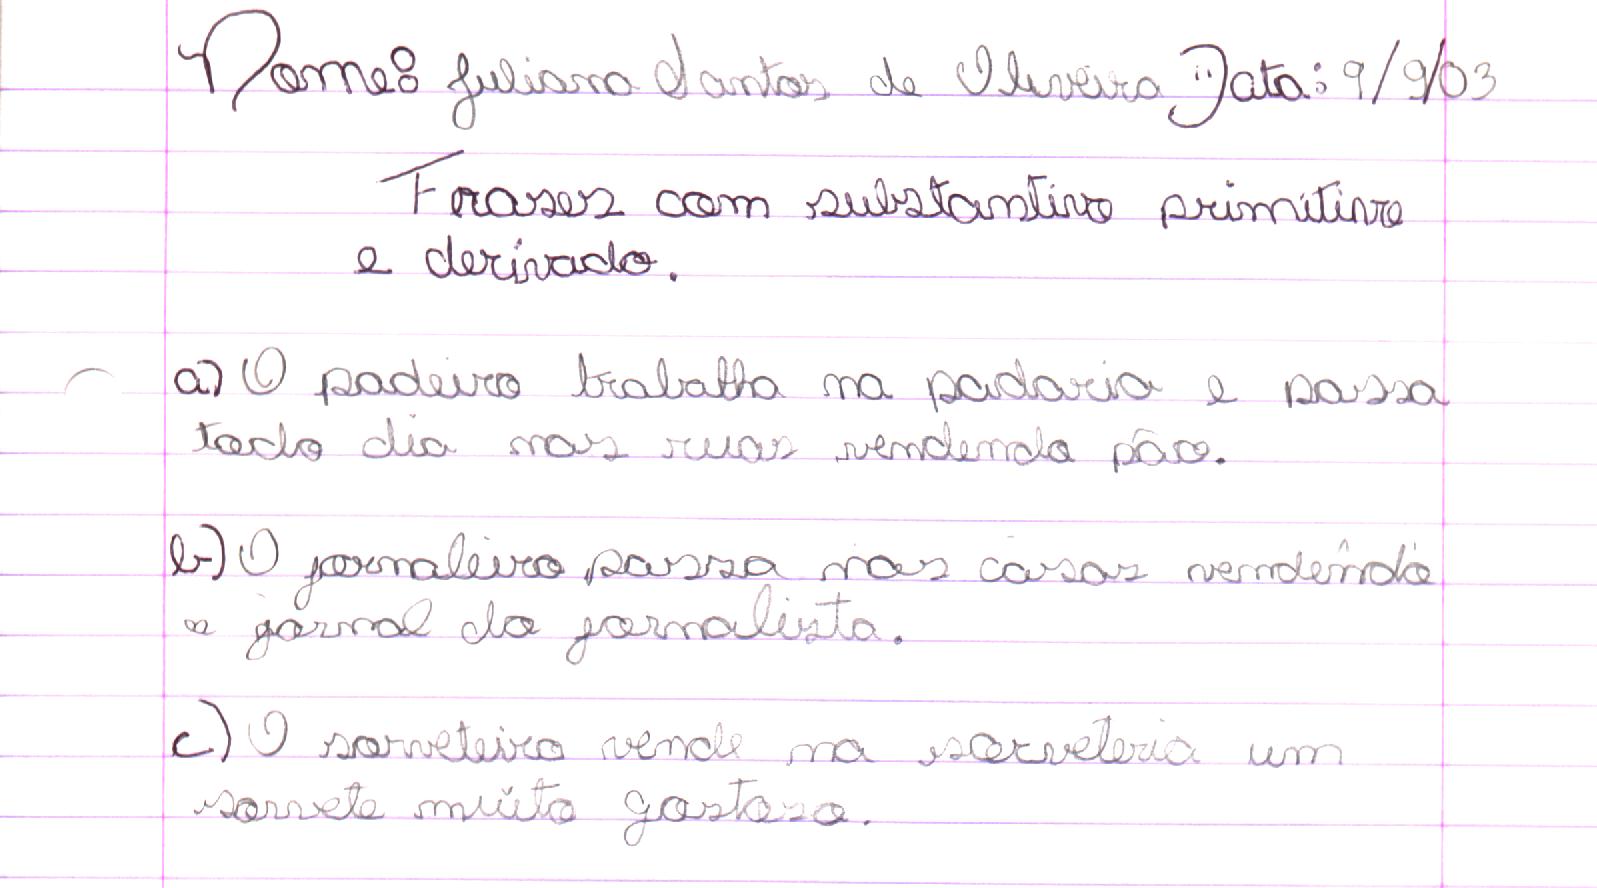 Nome: Juliana Santos de Oliveira Data: 9/9/03
Frases com substantivo primitivo
e derivado.
a) O padeiro trabalha na padaria e passa
todo dia nas ruas vendendo pão.
b) O jornaleiro passa nas casas vendêndo
o jornal do jornalista.
c) O sorveteiro vende na sorveteria um
sorvete muito gostoso.